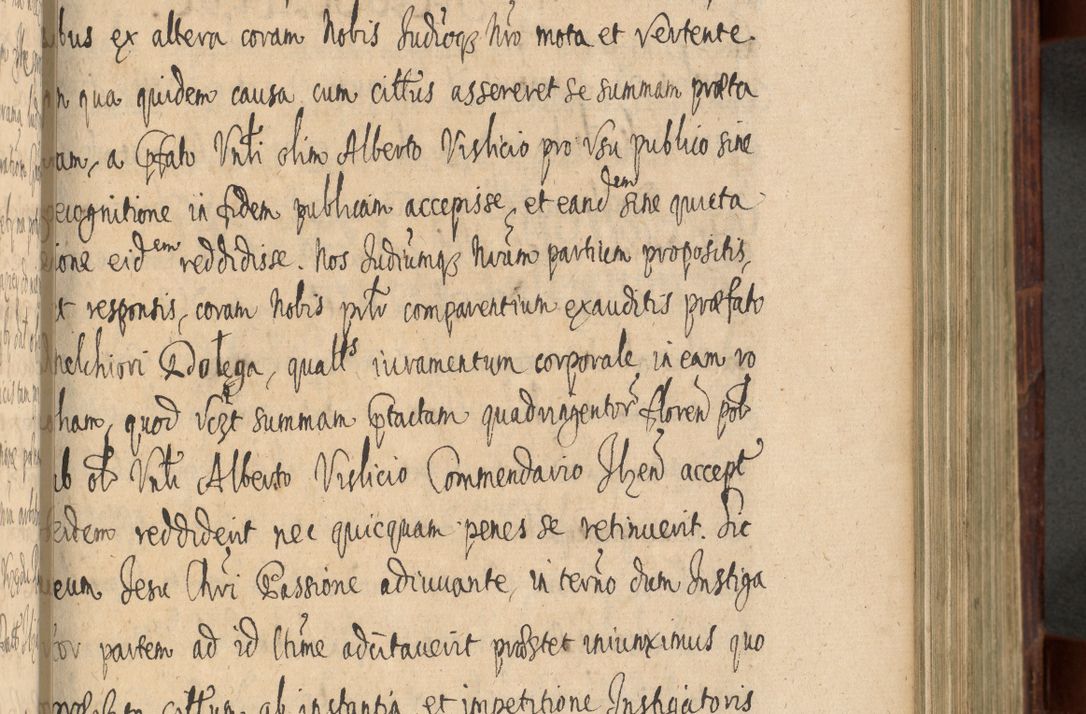 bus ex altera coram Nobis Judioq3 Nro mota et vertente.
in qua quidem causa cum cittus assereret se summam præta
a Pfato Vnti olim Alberto Vislicio pro Vsu publico sine
recognitione in fidem publicam accepisse, et eandem sine quieta
one eidem reddidisse. Nos Judiumq3 Nrum partium propositis,
et responsis, coram Nobis prltr comparentium exauditis præfato
Melchiori Dolega, qualts iuramentum corporale, in eam ro
tham, quod summam Ptactam quadringentor floren pol
ab ol Vnti Alberto Vislicio Commendario Ilzen accept
eidem reddiderit nec quicquam penes se retinuerit. Sic
eum Jesu Chri Passione adiuuante, in termo dum Instiga
tor partem ad id ltime adcitauerit præstet iniunximus quo
cittum ab instantia et impetitione Instigatoris